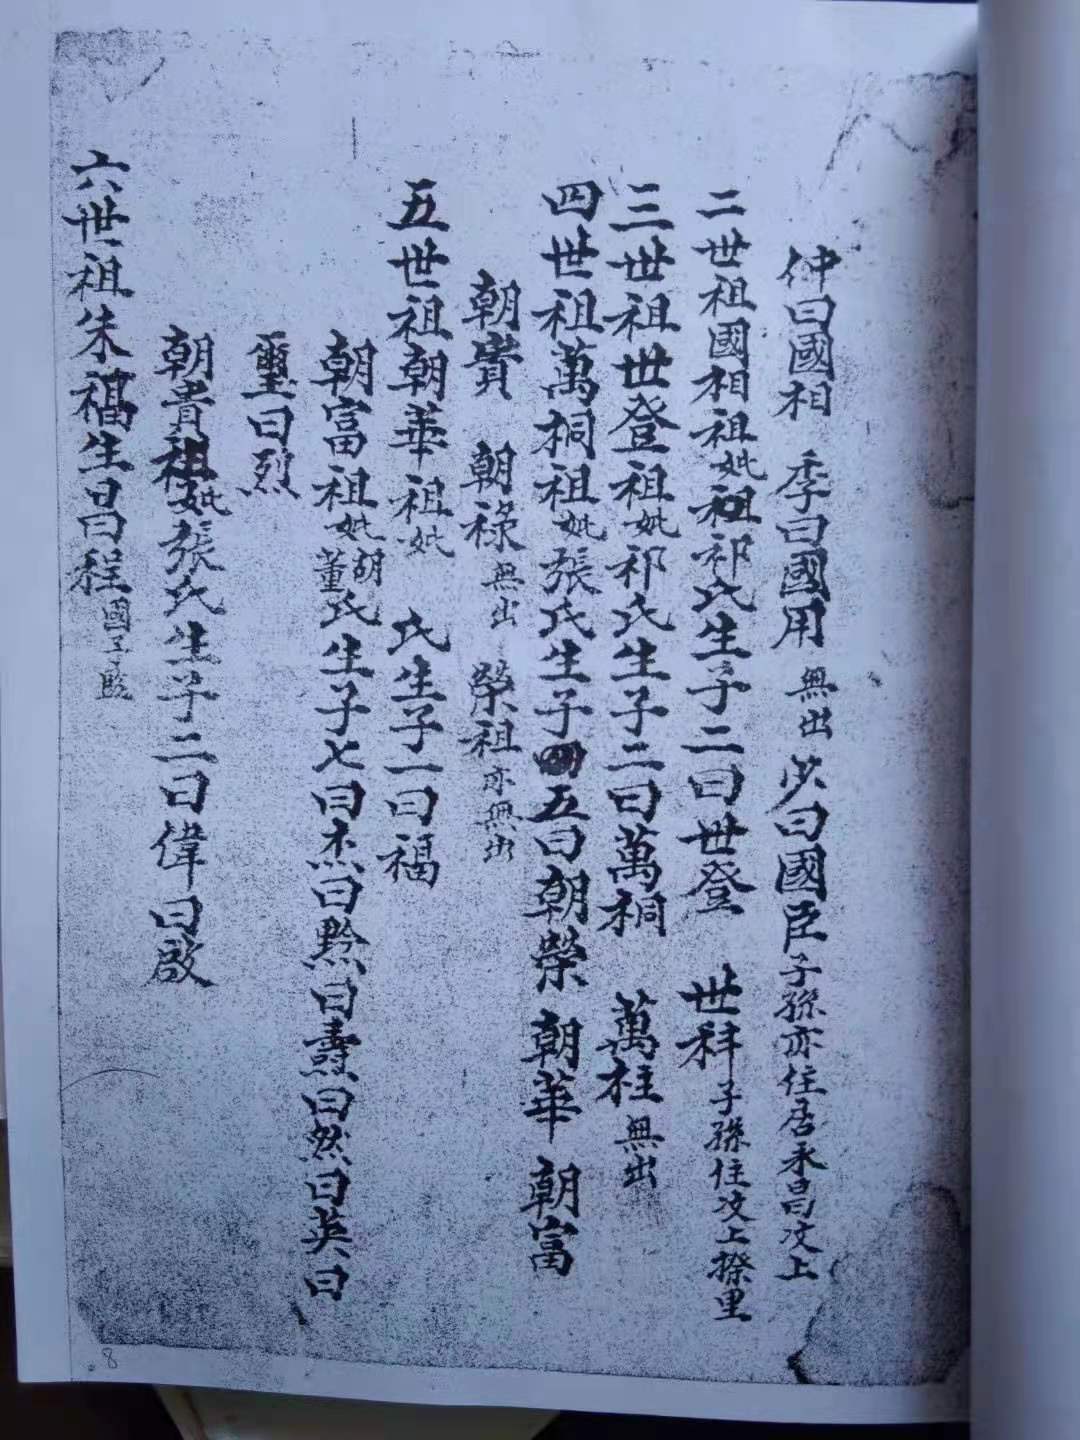 仲曰國相 季曰國用 無出 少曰國臣 子孫亦住居永昌汶上
二世祖國相祖妣祖祁氏生子二曰世登 世科 子孫住汶上揆里
三世祖世登祖妣祁氏生子二曰萬桐 萬柱 無出
四世祖萬桐祖妣張氏生子五曰朝榮 朝華 朝富
朝貴 朝祿 無出 榮祖亦無出
五世祖朝華祖妣 氏生子一曰福
朝富祖妣胡董氏生子七曰杰曰黔曰燾曰然曰英曰
璽曰烈
朝貴祖妣張氏生子二曰偉曰啟
六世祖朱福生曰程 國子監
8